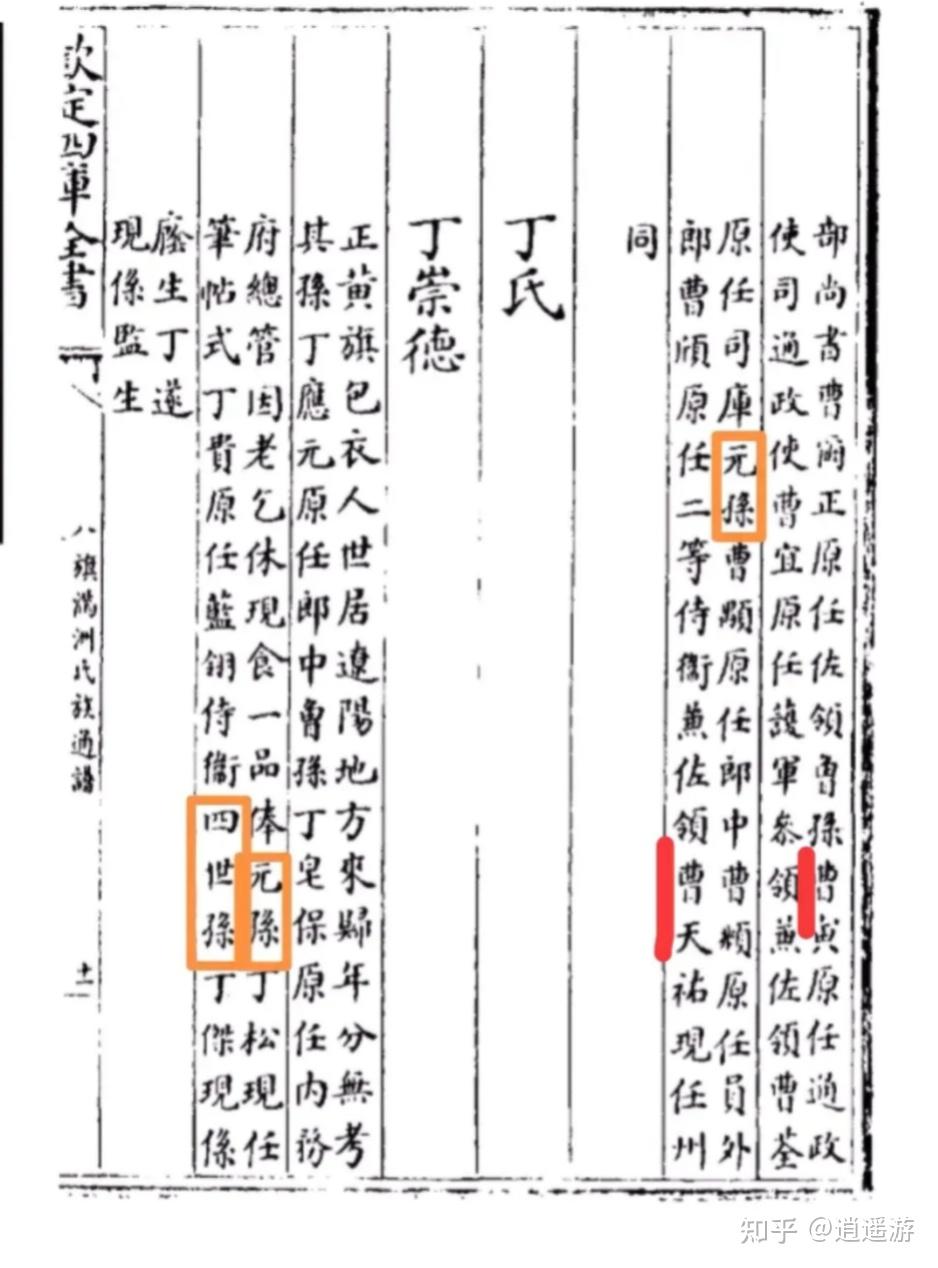 部尚書曹爾正原任佐領曾孫曹寅原任通政
使司通政使曹宜原任護軍叅領兼佐領曹荃
原任司庫元孫曹顒原任郎中曹頫原任員外
郎曹頎原任二等侍衛兼佐領曹天祐現任州
同
丁氏
丁崇德
正黃旗包衣人世居遼陽地方來歸年分無考
其孫丁應元原任郎中曾孫丁皂保原任內務
府總管因老乞休現食一品俸元孫丁松現任
筆帖式丁貴原任藍翎侍衛四世孫丁傑現係
廕生丁遂
現係監生
欽定四庫全書
八旗滿洲氏族通譜
十一
知乎 @逍遥游